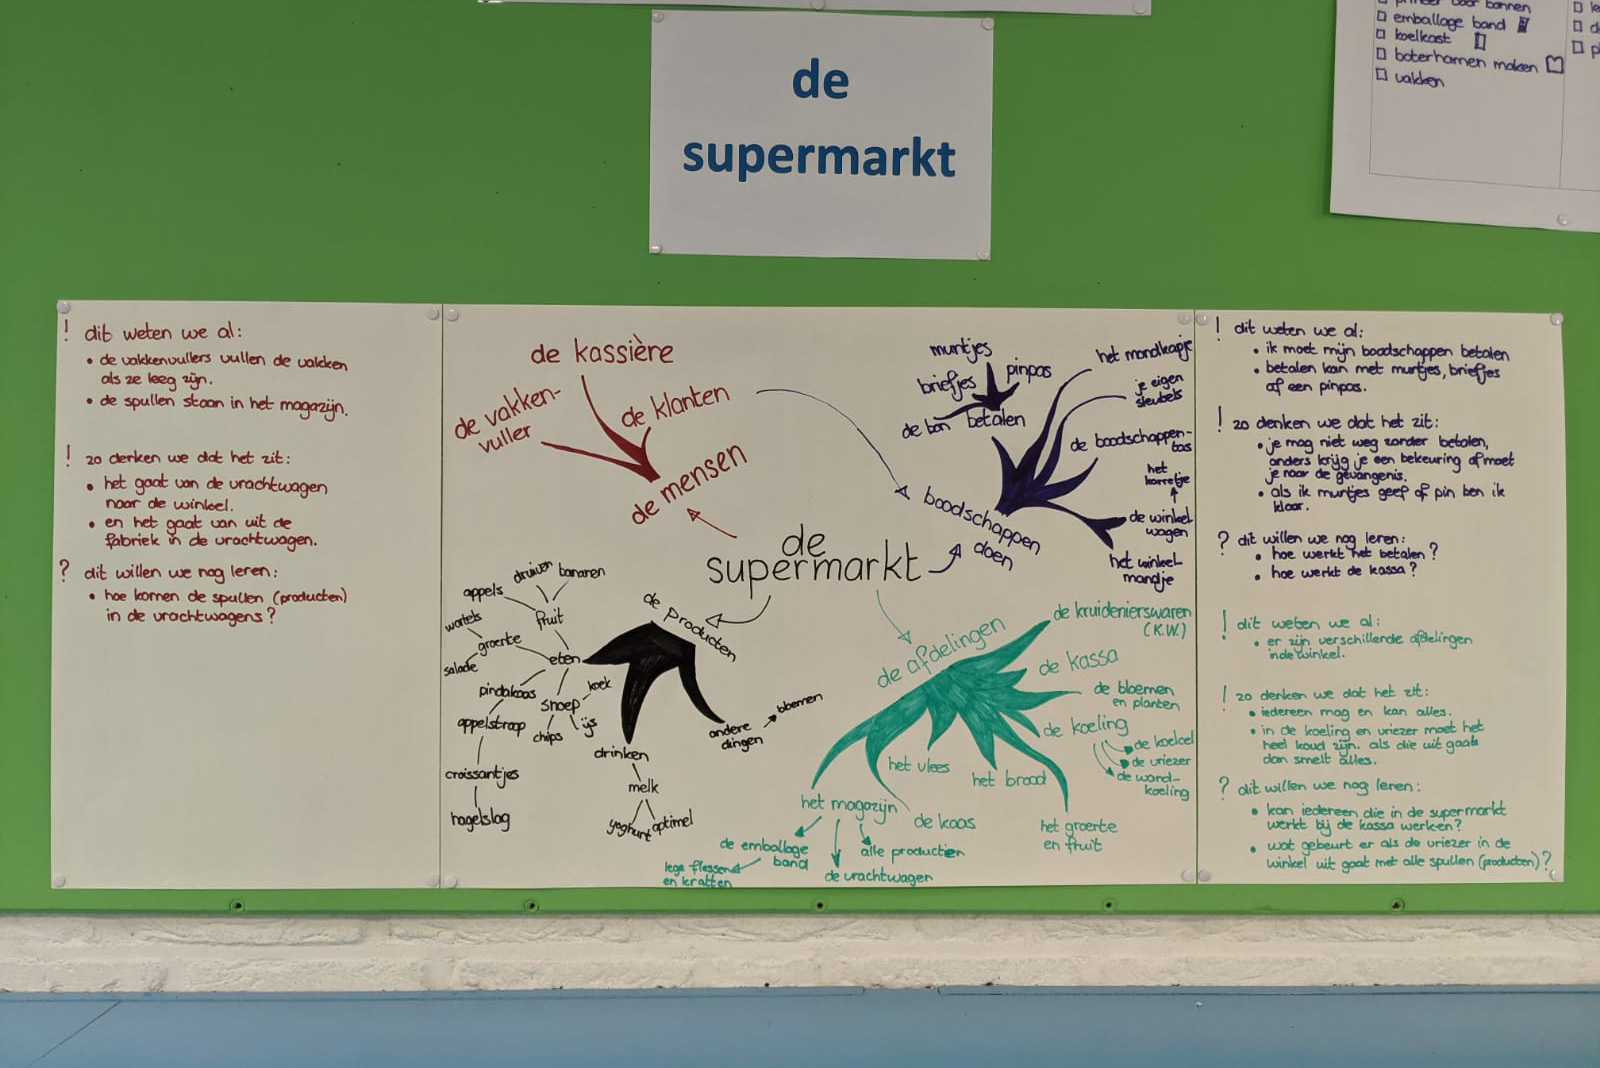 de
supermarkt
emballage band
koelkast
boterhammen maken
vakken
! dit weten we al:
• de vakkenvullers vullen de vakken
als ze leeg zijn.
• de spullen staan in het magazijn.
! zo denken we dat het zit:
• het gaat van de vrachtwagen
naar de winkel.
• en het gaat van uit de
fabriek in de vrachtwagen.
? dit willen we nog leren:
• hoe komen de spullen (producten)
in de vrachtwagens?
de kassière
de vakken-
vuller
de klanten
de mensen
de
supermarkt
muntjes
briefjes
pinpas
de bon
betalen
het mondkapje
je eigen
sleutels
de boodschappen-
tas
het
karretje
de winkel
wagen
het winkel
mandje
boodschappen
doen
de producten
druiven
bananen
appels
fruit
wortels
groente
salade
eten
pindakaas
snoep
koek
ijs
chips
appelstroop
croissantjes
hagelslag
drinken
melk
yoghurt
optimel
andere
dingen
bloemen
de afdelingen
de kruidenierswaren
(K.W.)
de kassa
de bloemen
en planten
de koeling
de koelcel
de vriezer
de wand-
koeling
het vlees
het brood
het magazijn
de kaas
het groente
en fruit
de emballage
band
lege flessen
en kratten
alle producten
de vrachtwagen
! dit weten we al:
• ik moet mijn boodschappen betalen
• betalen kan met muntjes, briefjes
of een pinpas.
! zo denken we dat het zit:
• je mag niet weg zonder betalen,
anders krijg je een bekeuring of moet
je naar de gevangenis.
• als ik muntjes geef of pin ben ik
klaar.
? dit willen we nog leren:
• hoe werkt het betalen?
• hoe werkt de kassa?
! dit weten we al:
• er zijn verschillende afdelingen
in de winkel.
! zo denken we dat het zit:
• iedereen mag en kan alles.
• in de koeling en vriezer moet het
heel koud zijn. als die uit gaat
dan smelt alles.
? dit willen we nog leren:
• kan iedereen die in de supermarkt
werkt bij de kassa werken?
• wat gebeurt er als de vriezer in de
winkel uit gaat met alle spullen (producten)?